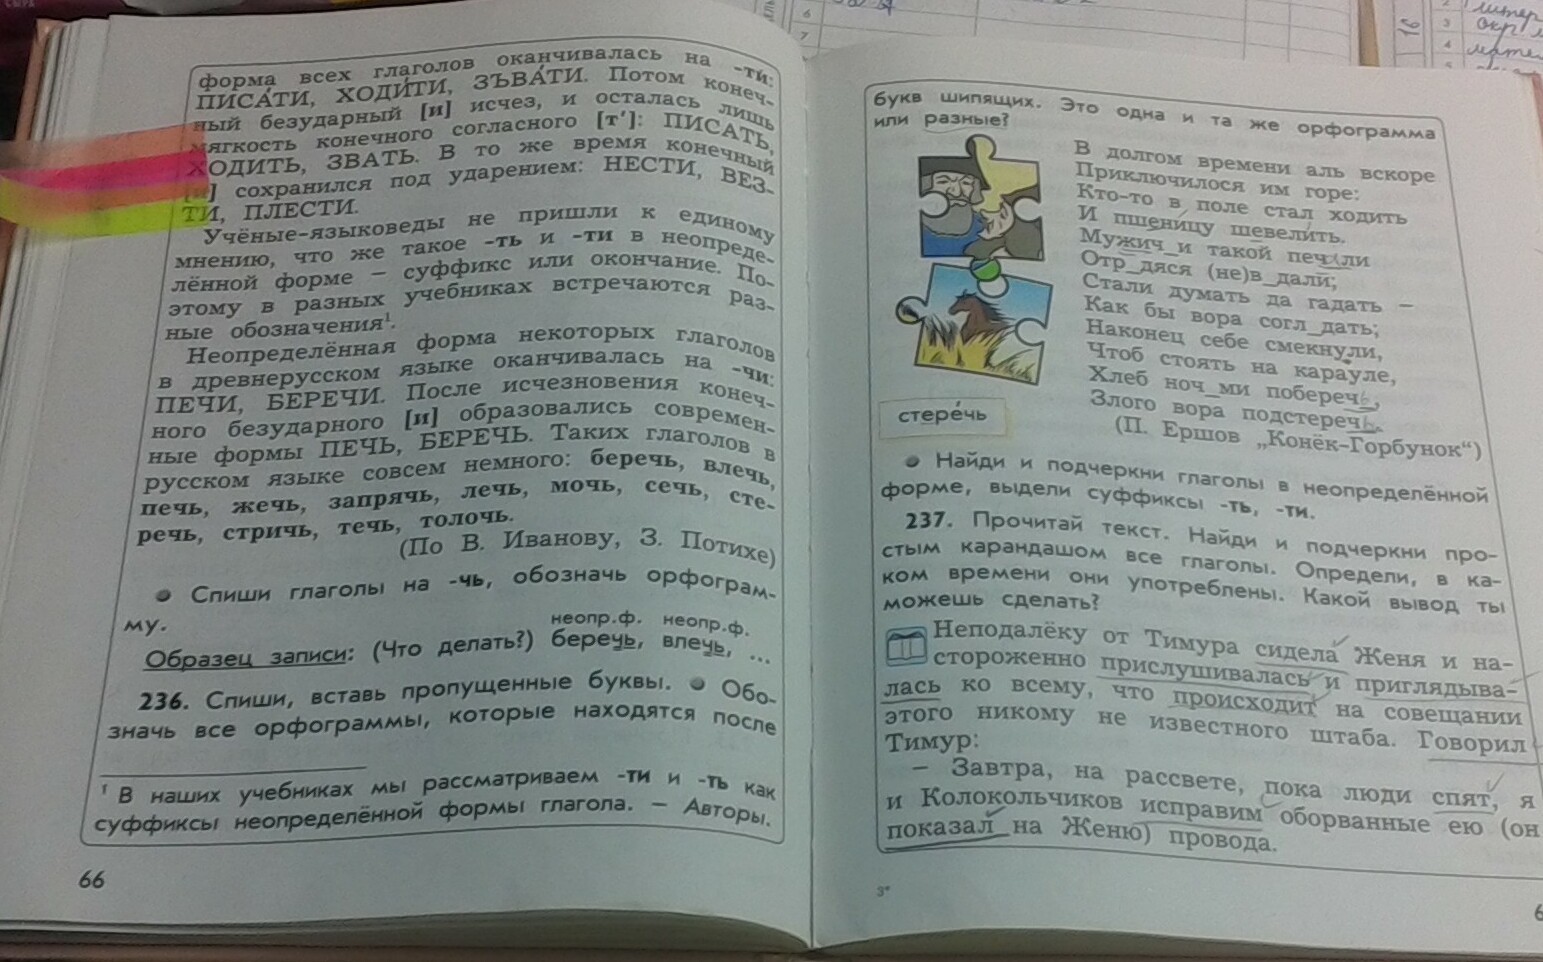 форма всех глаголов оканчивалась на -ти:
ПИСА́ТИ, ХОДИ́ТИ, ЗЪВА́ТИ. Потом конеч-
ный безударный [и] исчез, и осталась лишь
мягкость конечного согласного [т′]: ПИСАТЬ,
ХОДИТЬ, ЗВАТЬ. В то же время конечный
[и] сохранился под ударением: НЕСТИ, ВЕЗ-
ТИ, ПЛЕСТИ.
Учёные-языковеды не пришли к единому
мнению, что же такое -ть и -ти в неопреде-
лённой форме – суффикс или окончание. По-
этому в разных учебниках встречаются раз-
ные обозначения¹.
Неопределённая форма некоторых глаголов
в древнерусском языке оканчивалась на -чи:
ПЕЧИ, БЕРЕЧИ. После исчезновения конеч-
ного безударного [и] образовались современ-
ные формы ПЕЧЬ, БЕРЕЧЬ. Таких глаголов в
русском языке совсем немного: беречь, влечь,
печь, жечь, запрячь, лечь, мочь, сечь, сте-
речь, стричь, течь, толочь.
(По В. Иванову, З. Потихе)
● Спиши глаголы на -чь, обозначь орфограм-
му.
неопр.ф. неопр.ф.
Образец записи: (Что делать?) беречь, влечь, ...
236. Спиши, вставь пропущенные буквы. ● Обо-
значь все орфограммы, которые находятся после
¹ В наших учебниках мы рассматриваем -ти и -ть как
суффиксы неопределённой формы глагола. – Авторы.
66
букв шипящих. Это одна и та же орфограмма
или разные?
В долгом времени аль вскоре
Приключилося им горе:
Кто-то в поле стал ходить
И пшеницу шевелить.
Мужич_и такой печали
Отр_дяся (не)в_дали;
Стали думать да гадать –
Как бы вора согл_дать;
Наконец себе смекнули,
Чтоб стоять на карауле,
Хлеб ноч_ми поберечь,
Злого вора подстеречь.
(П. Ершов „Конёк-Горбунок“)
стере́чь
● Найди и подчеркни глаголы в неопределённой
форме, выдели суффиксы -ть, -ти.
237. Прочитай текст. Найди и подчеркни про-
стым карандашом все глаголы. Определи, в ка-
ком времени они употреблены. Какой вывод ты
можешь сделать?
Неподалёку от Тимура сидела Женя и на-
стороженно прислушивалась и приглядыва-
лась ко всему, что происходит на совещании
этого никому не известного штаба. Говорил
Тимур:
– Завтра, на рассвете, пока люди спят, я
и Колокольчиков исправим оборванные ею (он
показал на Женю) провода.
3*
6